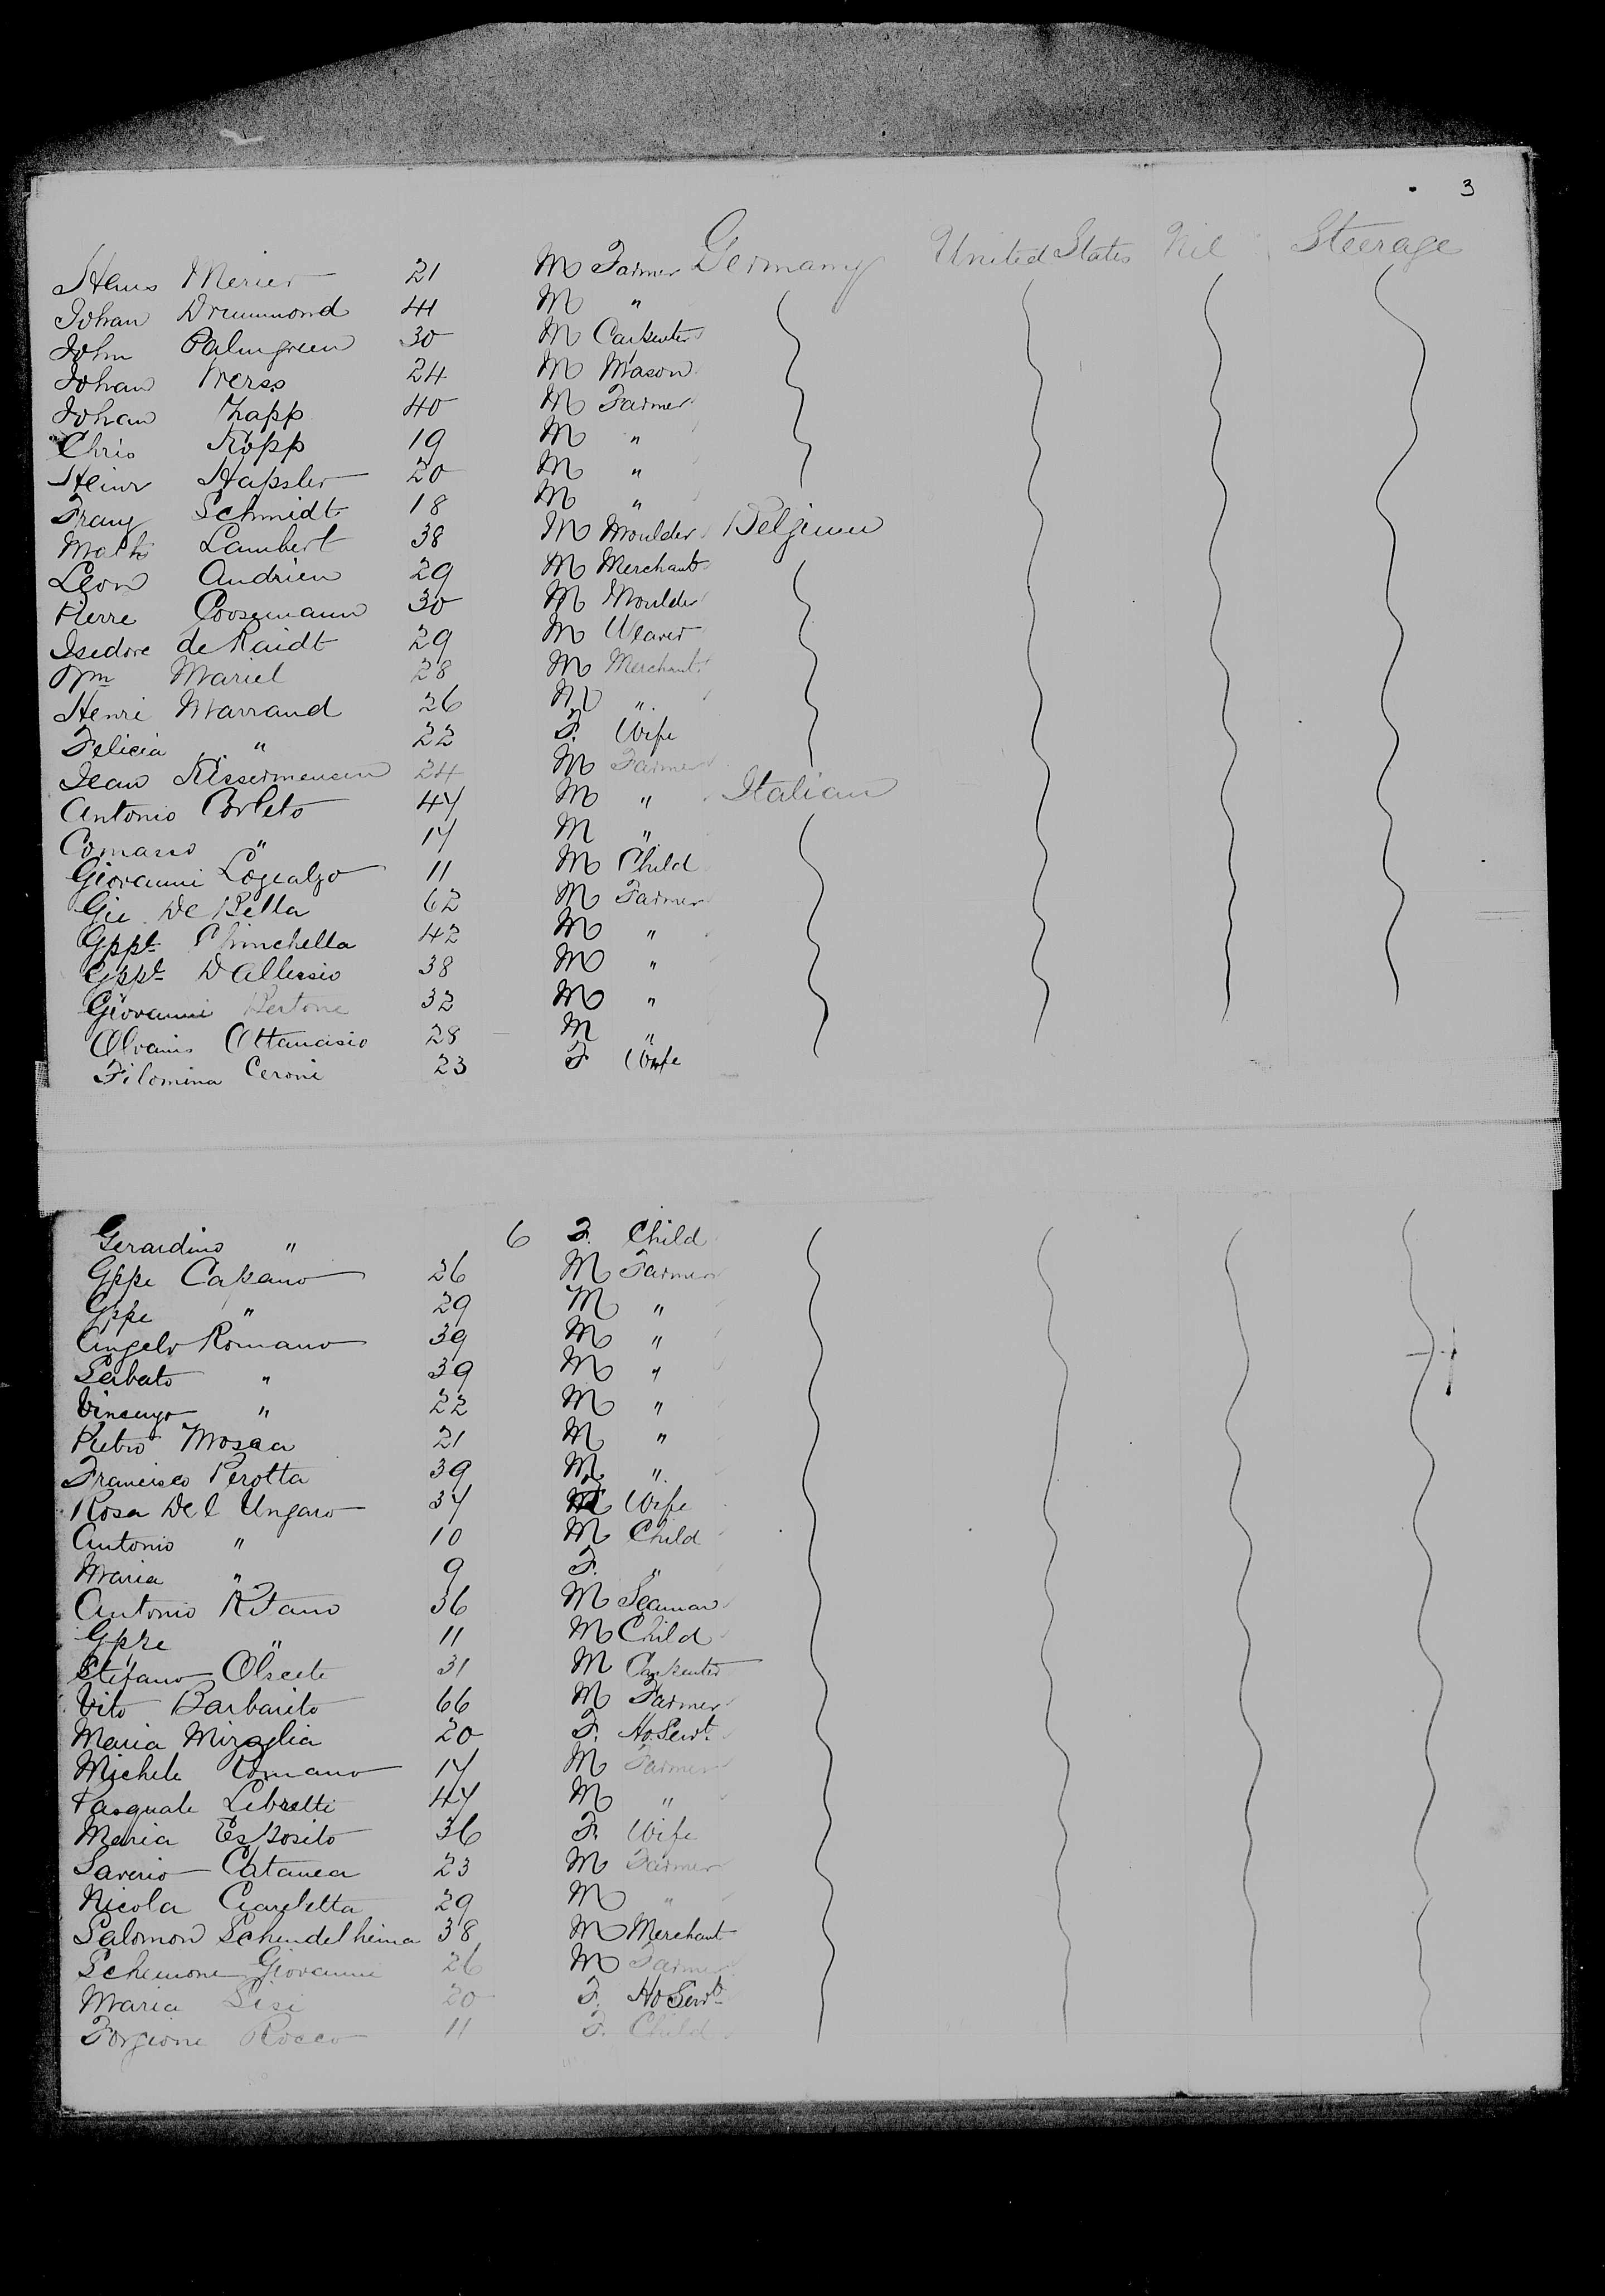 3
Hans Meier 21 M Farmer Germany United States Nil Steerage
Johan Drummond 41 M "
John Palmgreen 30 M Carpenter
Johan Weiss 24 M Mason
Johan Zapp 40 M Farmer
Chris Kopp 19 M "
Heinr Hapsler 20 M "
Franz Schmidt 18 M "
Math Lambert 38 M Moulder Belgium
Leon Andrien 29 M Merchant
Pierre Coosemann 30 M Moulder
Isedore de Raidt 29 M Weaver
Wm Mariel 28 M Merchant
Henri Marrand 26 M "
Felicia " 22 F. Wife
Jean 24 M Farmer
Antonio Corleto 47 M " Italian
" 17 M "
Giovanni 11 M Child
Gie De Bella 62 M Farmer
Gppe Chinchella 42 M "
Gppe D'Allessio 38 M "
Giovanni Bertone 32 M "
Attanasio 28 M "
Filomina Ceroni 23 F Wife
Gerardino " 6 F. Child
Gppe Capano 26 M Farmer
Gppe " 29 M "
Angelo Romano 39 M "
Sabato " 39 M "
Vincenzo " 22 M "
Pietro Mosca 21 M "
Francisco Perotta 39 M "
Rosa Del Ungaro 37 F Wife
Antonio " 10 M Child
Maria " 9 F. "
Antonio Ritano 36 M Seaman
Gppe " 11 M Child
Stefano 31 M Carpenter
Vito Barbarito 66 M Farmer
Maria Miraglia 20 F. Ho. Servt.
Michele Romano 17 M Farmer
Pasquale Libretti 47 M "
Maria Esposito 36 F. Wife
Saverio Catanea 23 M Farmer
Nicola Ciarletta 29 M "
Salomon Schendelheima 38 M Merchant
Schemone Giovanni 26 M Farmer
Maria Sisi 20 F. Ho Servt.
Forgione Rocco 11 F. Child